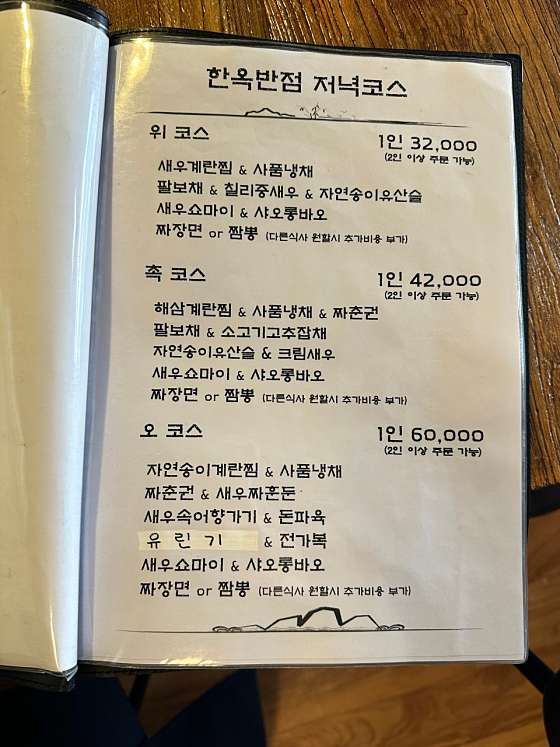 한옥반점 저녁코스
위 코스 1인 32,000
(2인 이상 주문 가능)
새우계란찜 & 사품냉채
팔보채 & 칠리중새우 & 자연송이유산슬
새우쇼마이 & 샤오롱바오
짜장면 or 짬뽕 (다른식사 원할시 추가비용 부가)
촉 코스 1인 42,000
(2인 이상 주문 가능)
해삼계란찜 & 사품냉채 & 짜춘권
팔보채 & 소고기고추잡채
자연송이유산슬 & 크림새우
새우쇼마이 & 샤오롱바오
짜장면 or 짬뽕 (다른식사 원할시 추가비용 부가)
오 코스 1인 60,000
(2인 이상 주문 가능)
자연송이계란찜 & 사품냉채
짜춘권 & 새우짜훈둔
새우속어향가기 & 돈파육
유린기 & 전가복
새우쇼마이 & 샤오롱바오
짜장면 or 짬뽕 (다른식사 원할시 추가비용 부가)